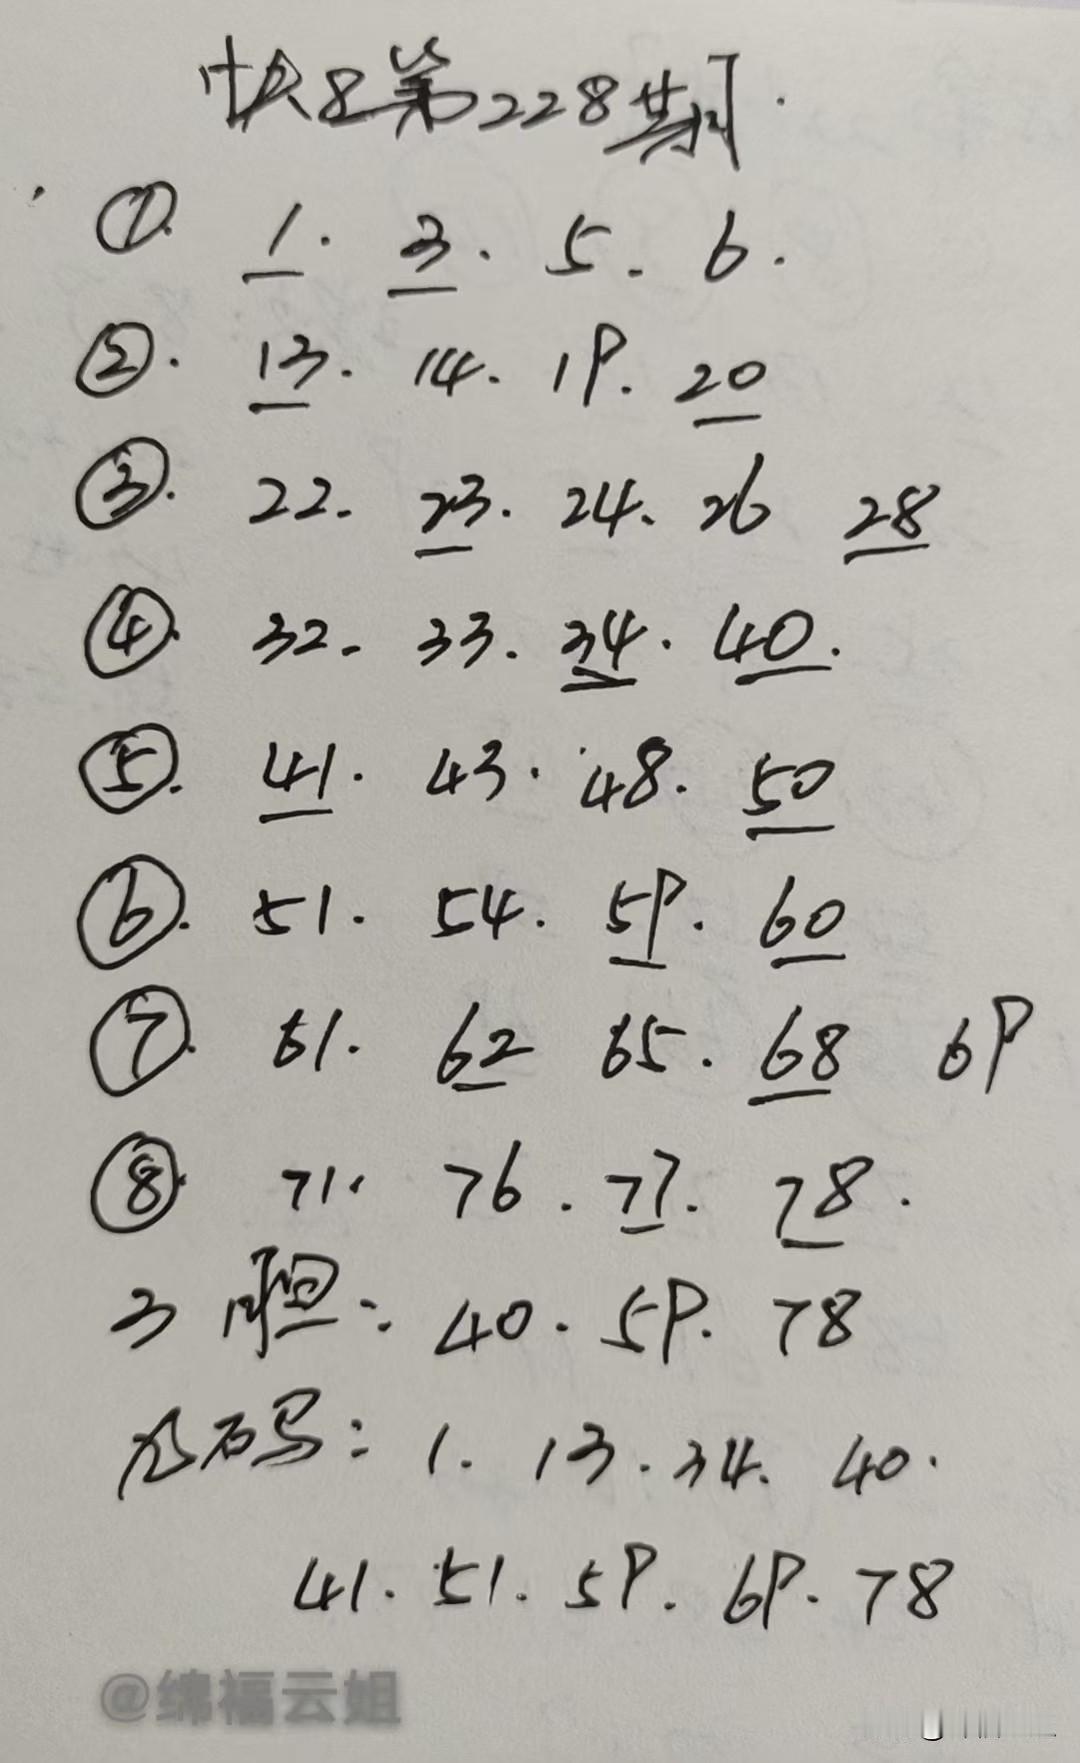 快8第228期.
①. 1. 3. 5. 6.
②. 13. 14. 19. 20
③. 22. 23. 24. 26 28
④. 32. 33. 34. 40.
⑤. 41. 43. 48. 50
⑥. 51. 54. 59. 60
⑦. 61. 62 65. 68 69
⑧. 71. 76. 77. 78.
3胆: 40. 59. 78
九码: 1. 13. 34. 40.
41. 51. 59. 69. 78
@绵福云姐